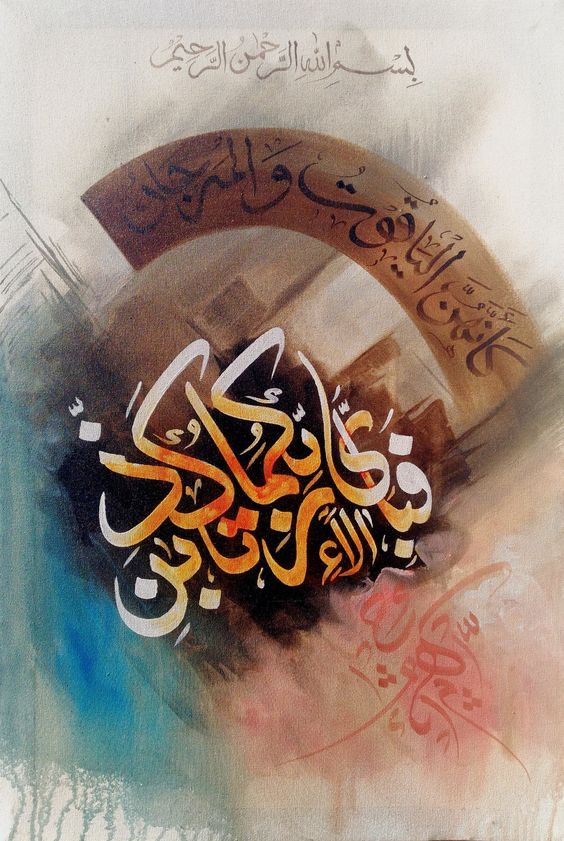 بِسْمِ اللهِ الرَّحْمٰنِ الرَّحِيْمِ
كَاَنَّهُنَّ الْيَاقُوتُ وَالْمَرْجَانُ
فَبِأَيِّ اٰلَاءِ رَبِّكُمَا تُكَذِّبٰنِ